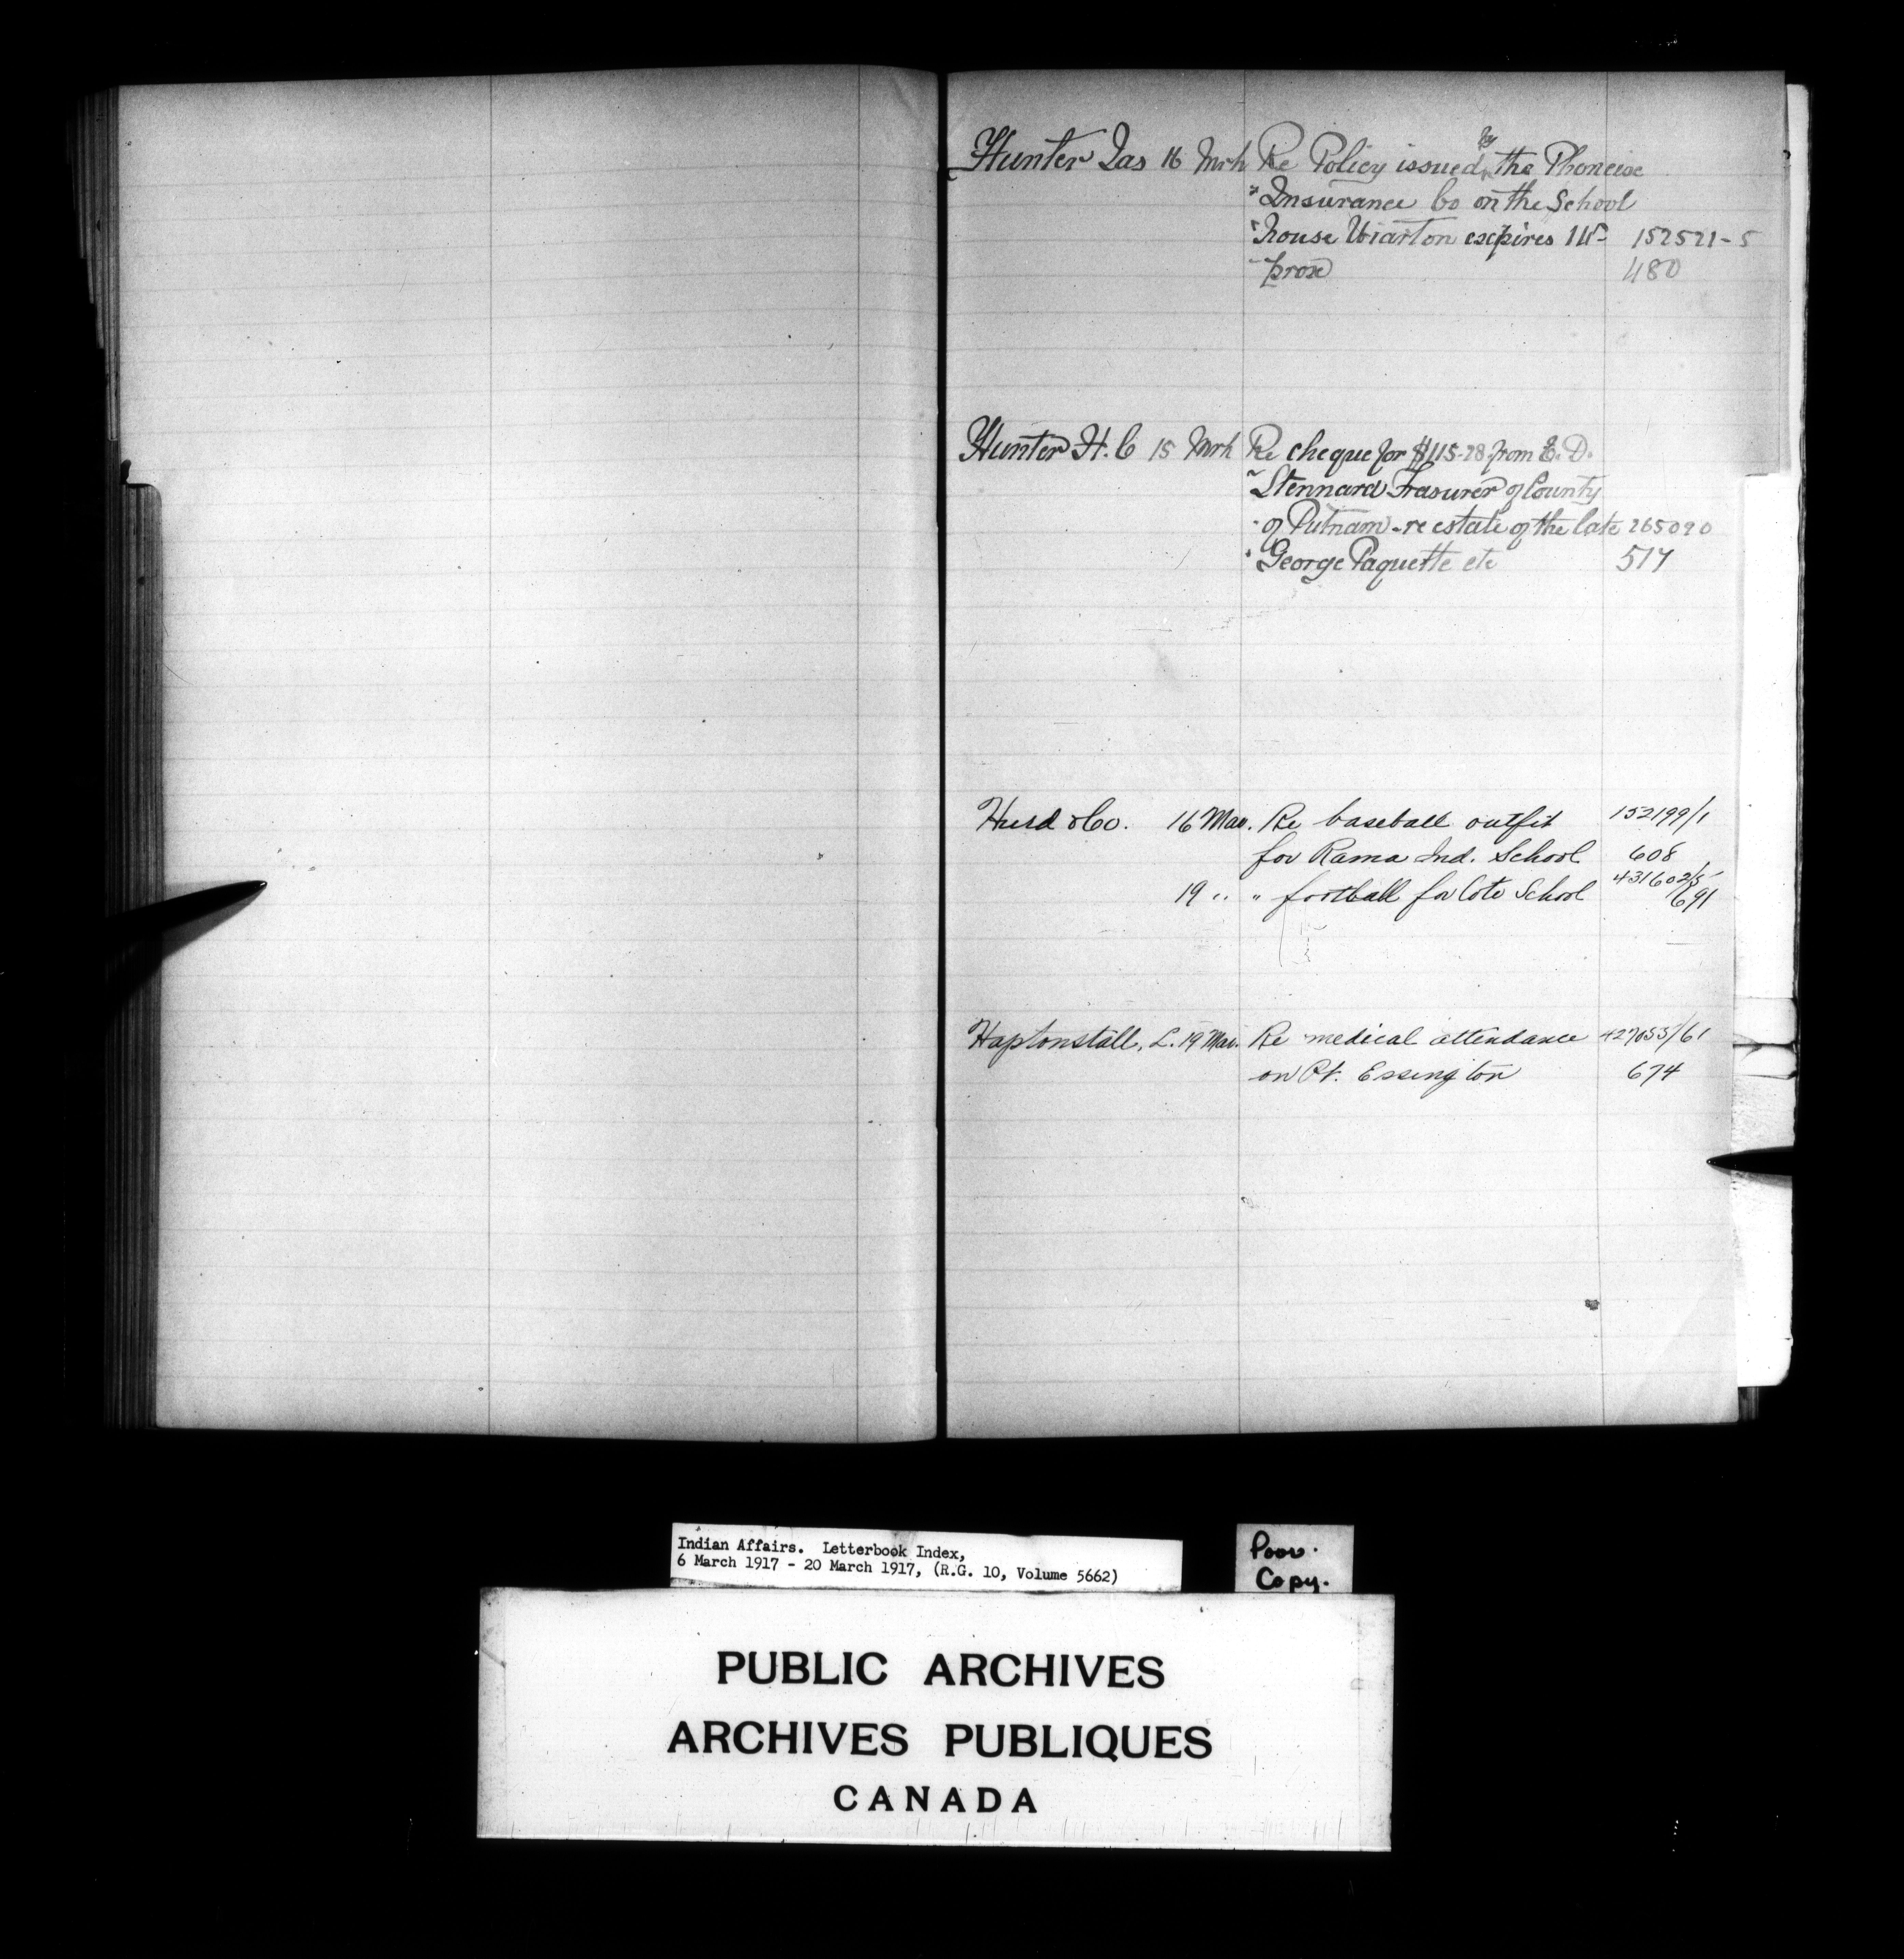 Hunter Jas 16 Mrh Re Policy issued by the Phoneixe
" Insurance Co on the School
" house Wiarton expires 1st- 152521-5
" prox 480
Hunter H. C 15 Mrh Re cheque for $115-28 from E. D.
" Stennard Trasurer of County
" of Putnam - re estate of the late 265090
" George Paquette etc 517
Hurd & Co. 16 Mar. Re baseball outfit 152199/1
for Rama Ind. School 608
19 " " football for Cote School 431602/5
691
Haptonstall, L. 19 Mar. Re medical attendance 427053/61
on Pt. Essington 674
Indian Affairs. Letterbook Index,
6 March 1917 - 20 March 1917, (R.G. 10, Volume 5662)
Poor.
Copy.
PUBLIC ARCHIVES
ARCHIVES PUBLIQUES
CANADA